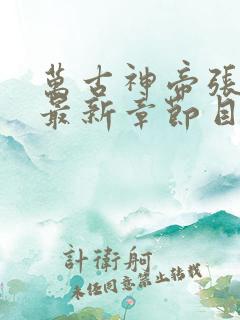 萬古神帝張
最新章節目
計衛舸
未经同意禁止转载